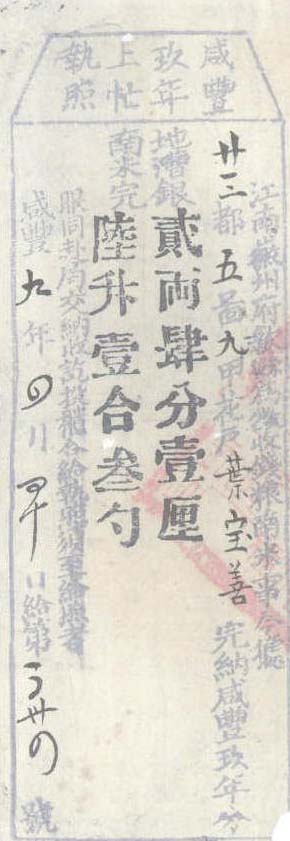 咸豐玖年上忙執照
江南徽州府歙縣為徵收錢糧南米事今據
廿三都五啚九甲花戶葉宝善完納咸豐玖年分
地漕銀貳両肆分壹厘
南米完陸升壹合叁勺
眼同赴局交納收訖投櫃合給執照須至給照者
咸豐九年四月日給第號